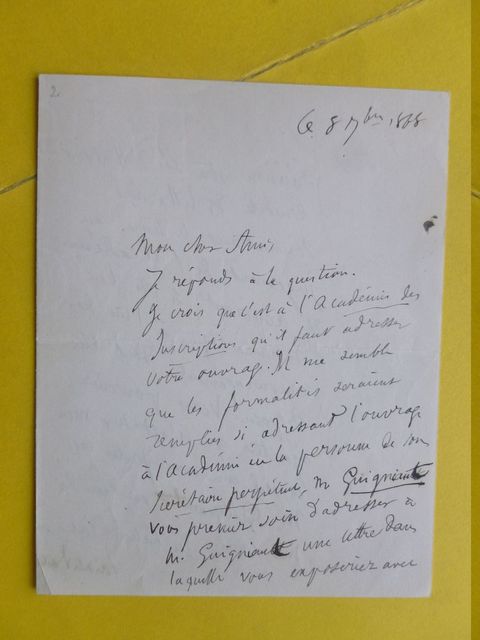 2
Ce 8 7bre 1868
Mon cher Ami,
Je réponds à la question.
Je crois que c'est à l'Académie des
Inscriptions qu'il faut adresser
votre ouvrage. Il me semble
que les formalités seraient
remplies si adressant l'ouvrage
à l'Académie en la personne de son
Secrétaire perpétuel, M Guigniault
vous preniez soin d'adresser à
M. Guigniault une lettre dans
laquelle vous exposeriez avec